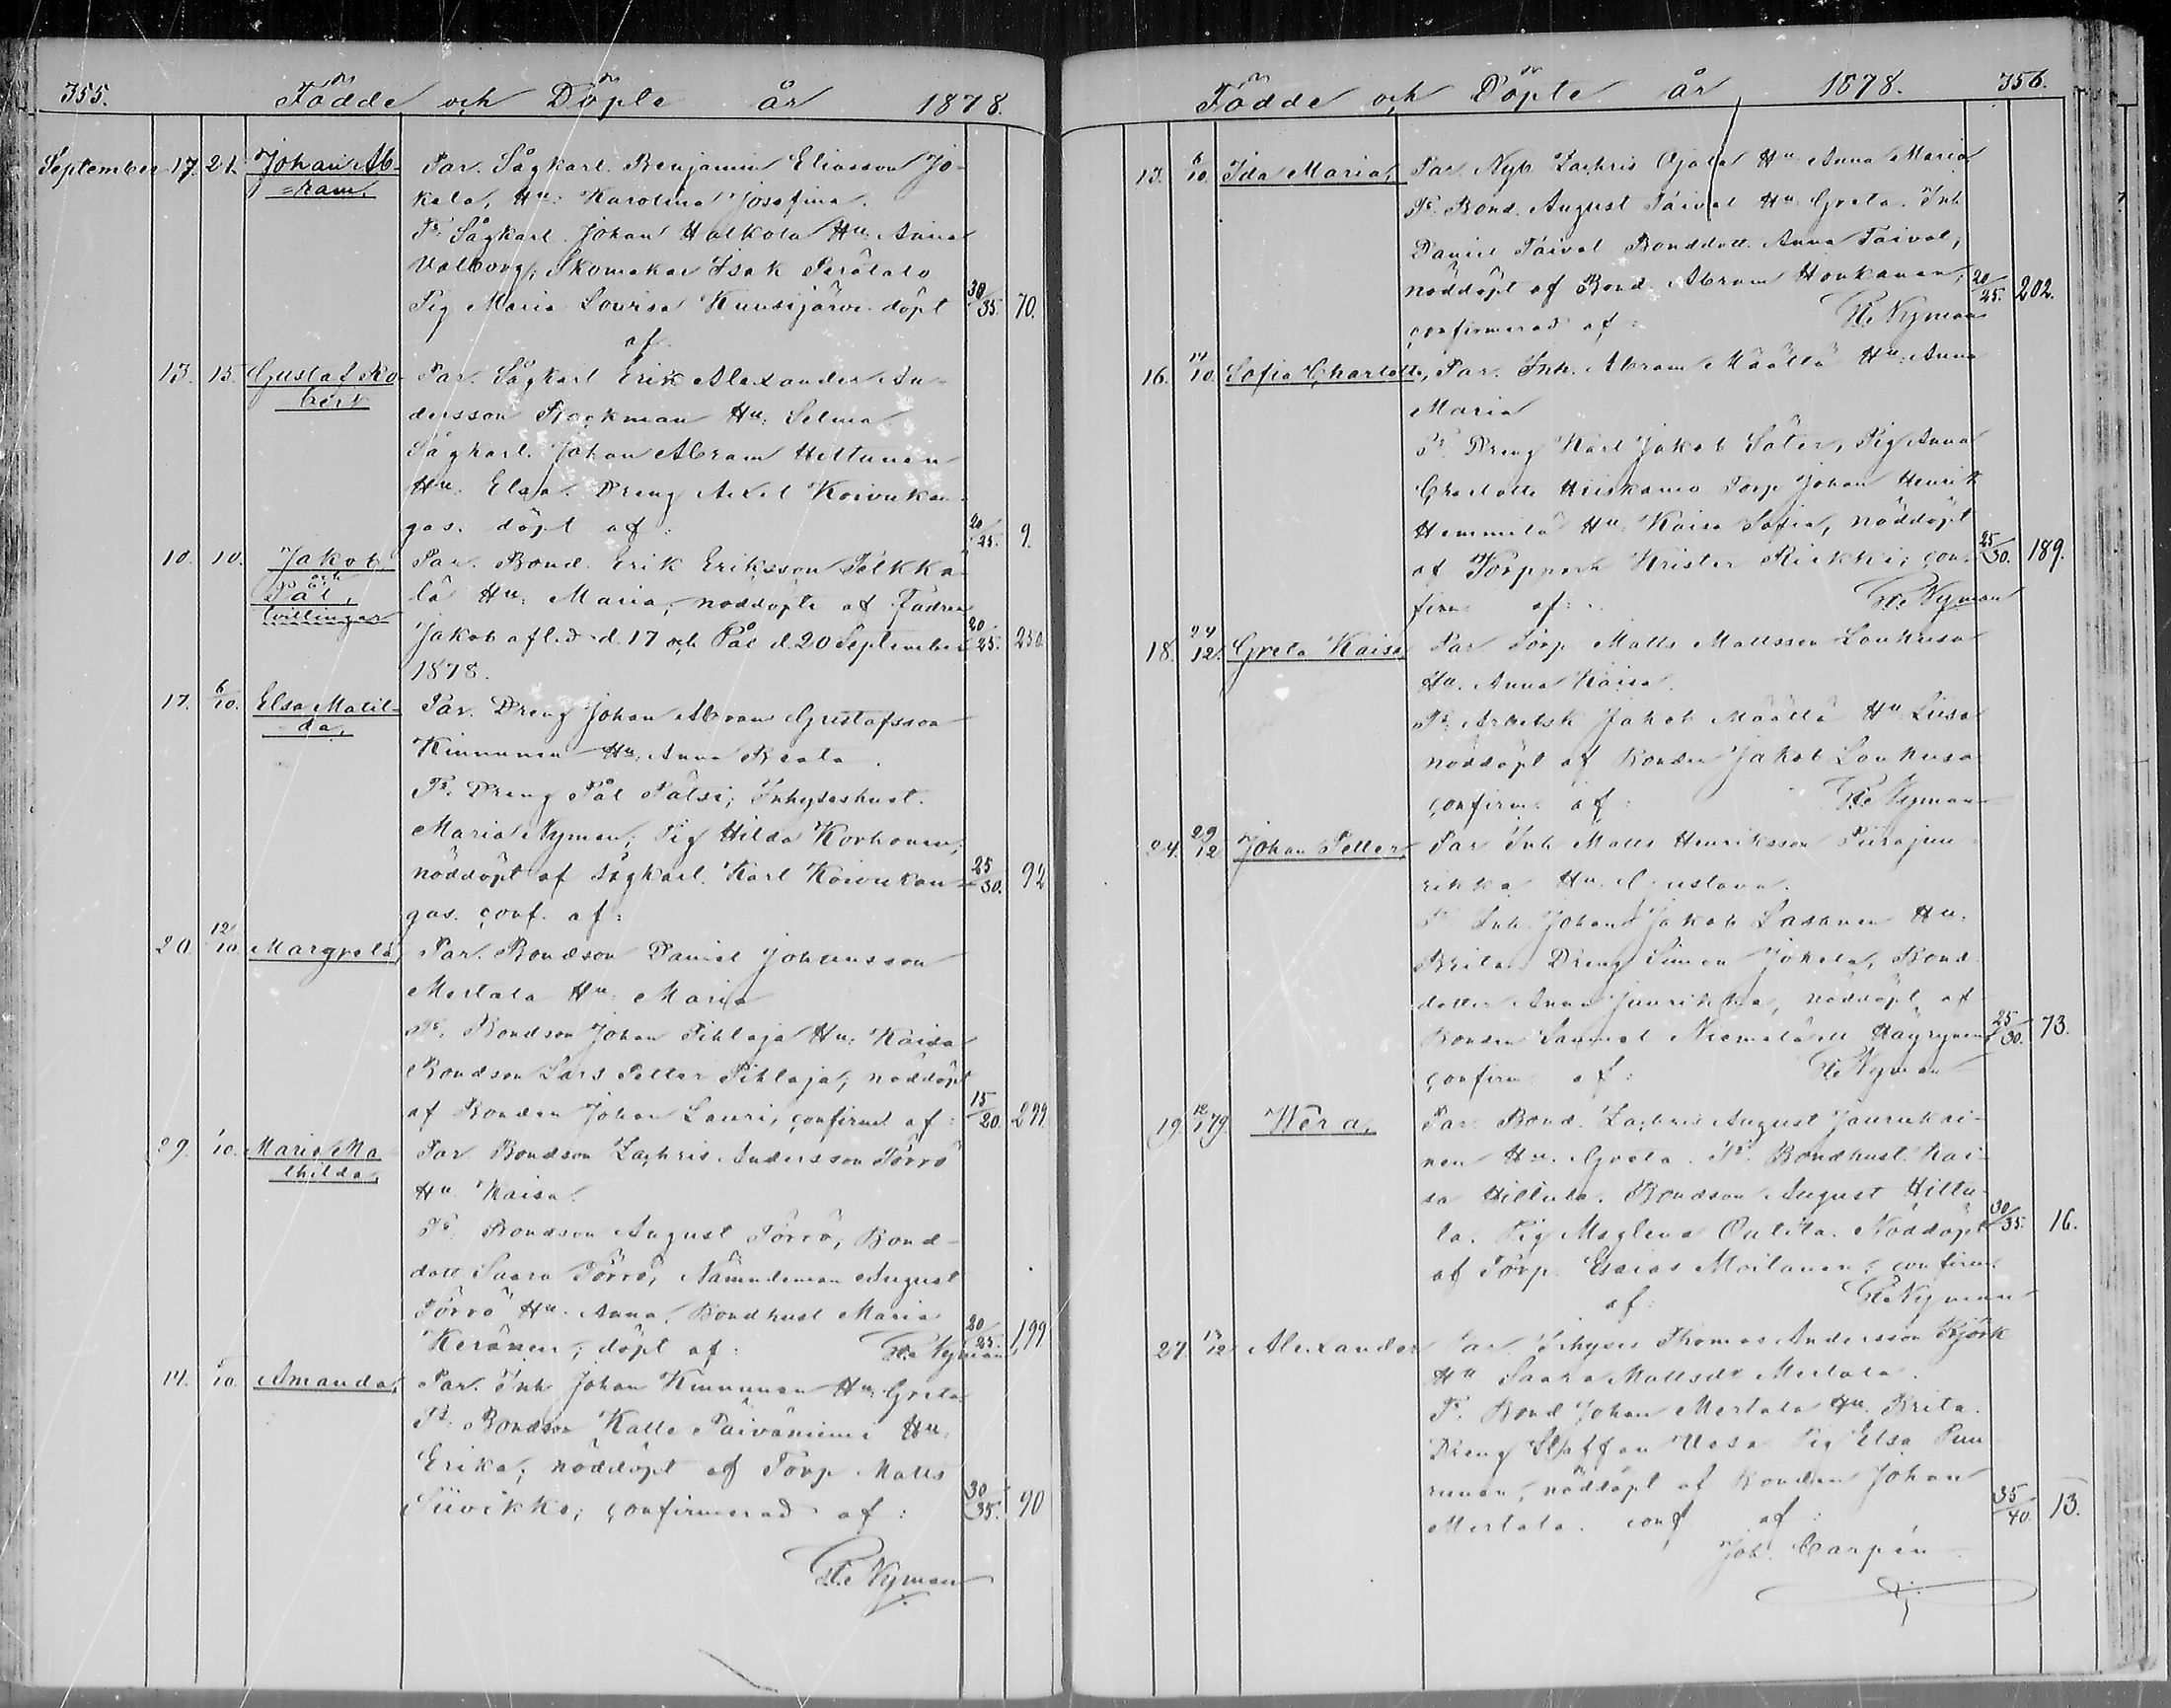 355. Födde och Döpte år 1878.
September 17. 21. Johan Ab- Par. Sågkarl. Benjamin Eliasson Jo-
=ram, kela, Hu: Karolina Josefina.
Fr. Sågkarl. Johan Halkola Hu: Anna
Valborg, Skomakar Isak Perätalo
Pig Maria Lovisa Kuusijärvi döpt 30/35. 70.
af.
13. 15. Gustaf Ro- Par. Sågkarl Erik Alexander An-
bert dersson Brockman Hu: Selma
Sågkarl. Johan Abram Hettunen
Hu: Elsa. Dreng Axel Koivukan-
gas. döpt af: 20/25. 9.
10. 10. Jakob Par. Bond. Erik Eriksson Pelkka-
och Pål, lä Hu: Maria, nöddöpte af Fadren
tvillingar Jakob afled d. 17 och Pål d. 20 September 20/25. 250.
1878.
17. 6/10. Elsa Matil- Par. Dreng Johan Abram Gustafsson
da, Kinnunen Hu: Anna Beata.
Fr. Dreng Pål Pätsi, Inhyseshust.
Maria Nyman, Pig Hilda Korhonen,
nöddöpt af Sågkarl. Karl Koivukan- 25/30. 92
gas. conf. af:
20. 12/10 Margreta, Par. Bondson Daniel Johansson
Mertala Hu: Maria
Fr. Bondson Johan Pihlaja Hu: Kaisa
Bondson Lars Petter Pihlaja, nöddöpt
af Bonden Johan Lauri, confirm af: 15/20. 299
29. /10. Maria Ma Par Bondson Zachris Andersson Törrö
thilda, Hu. Kaisa.
Fr. Bondson August Törrö, Bond-
dott Saara Törrö, Nämndeman August
Törrö Hu. Anna, Bondhust Maria
Keränen; döpt af: Nyman 20/25. 199
14. /10. Amanda, Par. Inh Johan Kinnunen Hu: Greta
Fr. Bondson Kalle Päiväniemi Hu:
Erika; nöddöpt af Torp Matts
Siivikko; confirmerad af: 30/35. 90
Nyman
Födde och Döpte år 1878. 356.
13. 6/10. Ida Maria, Par. Nyb. Zachris Ojala Hu Anna Maria
Fr. Bond. August Taival Hu Greta. Inh
Daniel Taival Bonddott. Anna Taival;
nöddöpt af Bond. Abram Honkanen; 20/25. 202.
confirmerad af: Nyman
16. /10. Sofia Charlotta, Par. Inh. Abram Määttä Hu: Anna
Maria
Fr. Dreng Karl Jakob Säter, Pig Anna
Charlotta Torp Johan Henrik
Hemmilä Hu: Kaisa Sofia, nöddöpt
af Krister Riekki; con- 25/30. 189.
firm af: Nyman
18. 24/12. Greta Kaisa, Par Torp Matts Mattsson Loukusa
Hu. Anna Kaisa.
Fr. Arbetsk Jakob Määttä Hu: Liisa
nöddöpt af Bonden Jakob Loukusa
confirm: af: Nyman
24. 29/12 Johan Petter, Par Inh Matts Henriksson Piirajuu-
rikka Hu. Gustava.
Fr Inh. Johan Jakob Sasanen Hu:
Brita. Dreng Simon Jokela, Bond
dotter Anna Juurikka, nöddöpt af
Bonden Samuel Niemelä ell Häyrynen 25/30. 73.
confirm af: Nyman
19. 79. Wera, Par. Bond. Zachris August Jaurukai-
nen Hu. Greta. Fr. Bondhust. Kai-
sa Hiltula. Bondson August Hiltu-
la. Pig Magleva Outila. Nöddöpt 30/35. 16.
af Torp. Esaias Moilanen, confirm.
af: Nyman
27. 13/12 Alexander Par Inhyses Thomas Andersson Björk
Hu Saara Mattsdr Mertala.
Fr. Bond Johan Mertala Hu. Brita.
Dreng Staffan Uosa Pig Elsa Puu-
runen, nöddöpt af Bonden Johan
Mertala. conf af: 35/40. 13.
Joh. Carpén